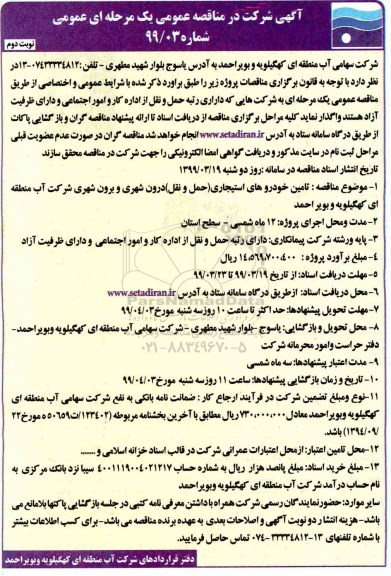 آگهی شرکت در مناقصه عمومی یک مرحله ای عمومی
شماره ۹۹/۰۳
نوبت دوم
شرکت سهامی آب منطقه ای کهگیلویه و بویراحمد به آدرس یاسوج بلوار شهید مطهری - تلفن: ۰۷۴۳۳۳۳۴۸۱۲-۱۳ در
نظر دارد با توجه به قانون برگزاری مناقصات پروژه زیر را طبق برآورد ذکر شده با شرایط عمومی و اختصاصی از طریق
مناقصه عمومی یک مرحله ای به شرکت هایی که دارای رتبه حمل و نقل از اداره کار و امور اجتماعی و دارای ظرفیت
آزاد هستند واگذار نماید کلیه مراحل برگزاری مناقصه از دریافت اسناد تا ارائه پیشنهاد مناقصه گران و بازگشایی پاکات
از طریق درگاه سامانه ستاد به آدرس www.setadiran.ir انجام خواهد شد مناقصه گران در صورت عدم عضویت قبلی
مراحل ثبت نام در سایت مذکور و دریافت گواهی امضا الکترونیکی را جهت شرکت در مناقصه محقق سازند
تاریخ انتشار اسناد مناقصه در سامانه: روز دو شنبه ۱۳۹۹/۰۳/۱۹
۱- موضوع مناقصه : تامین خودرو های استیجاری(حمل و نقل)درون شهری و برون شهری شرکت آب منطقه
ای کهگیلویه و بویر احمد
۲- مدت ومحل اجرای پروژه: ۱۲ ماه شمسی - سطح استان
۳- پایه ورشته شرکت پیمانکاری: دارای رتبه حمل و نقل از اداره کار و امور اجتماعی و دارای ظرفیت آزاد
۴- مبلغ برآورد پروژه : ۱۴،۵۶۹،۷۰۰،۴۰۰ ریال
۵- مهلت دریافت اسناد: از تاریخ ۹۹/۰۳/۱۹ تا ۹۹/۰۳/۲۳
۶- محل دریافت اسناد: ازطریق درگاه سامانه ستاد به آدرس www.setadiran.ir
۷- مهلت تحویل پیشنهادها: حداکثر تا ساعت ۱۰ روز سه شنبه مورخ ۹۹/۰۴/۰۳
۸- محل تحویل و بازگشایی: یاسوج - بلوار شهید مطهری - شرکت سهامی آب منطقه ای کهگیلویه وبویراحمد-
دفتر حراست وامور محرمانه شرکت
۹- مدت اعتبار پیشنهادها: سه ماه شمسی
۱۰- تاریخ و زمان بازگشایی پیشنهادها: ساعت ۱۱ روز سه شنبه مورخ ۹۹/۰۴/۰۳
۱۱- نوع ومبلغ تضمین شرکت در فرآیند ارجاع کار : ضمانت نامه بانکی به نفع شرکت سهامی آب منطقه ای
کهگیلویه وبویراحمد معادل ۷۳۰،۰۰۰،۰۰۰ ریال مطابق با آخرین بخشنامه مربوطه (۱۲۳۴۰۲/ت۵۰۶۵۹ ه مورخ ۲۲
/۱۳۹۴/۰۹) باشد.
۱۲- محل تامین اعتبار: از محل اعتبارات عمرانی شرکت در قالب اسناد خزانه اسلامی و .......
۱۳- مبلغ خرید اسناد: مبلغ پانصد هزار ریال به شماره حساب ۴۰۰۱۱۱۹۰۰۴۰۲۱۲۱۷ سیبا نزد بانک مرکزی به
نام حساب درآمد شرکت آب منطقه ای کهگیلویه وبویراحمد
سایر موارد: حضور نمایندگان رسمی شرکت همراه با داشتن معرفی نامه کتبی در جلسه بازگشایی پاکتها بلامانع می
باشد- هزینه انتشار دو نوبت آگهی و اصلاحات بعدی به عهده برنده مناقصه می باشد- برای کسب اطلاعات بیشتر
با شماره تلفنهای ۱۳-۳۳۳۳۴۸۱۲-۰۷۴ تماس حاصل فرمایید.
دفتر قراردادهای شرکت آب منطقه ای کهگیلویه وبویراحمد
ParsNamadData
۰۲۱-۸۸۳۴۹۶۷۰-۵